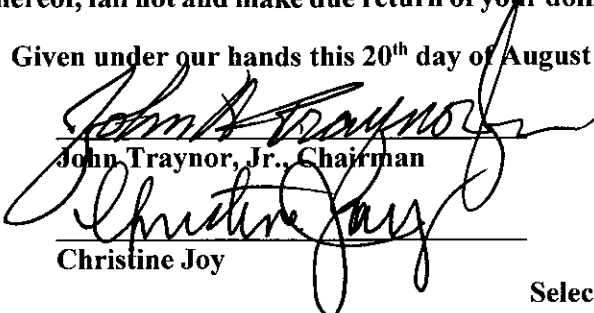 hereof, fail not and make due return of your doin
Given under our hands this 20th day of August
John A Traynor Jr
John Traynor, Jr., Chairman
Christine Joy
Christine Joy
Selec